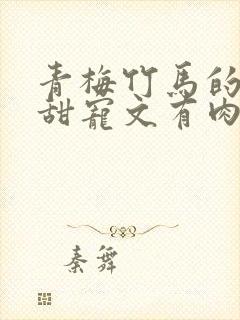 青梅竹马的
甜宠文有肉
秦舞